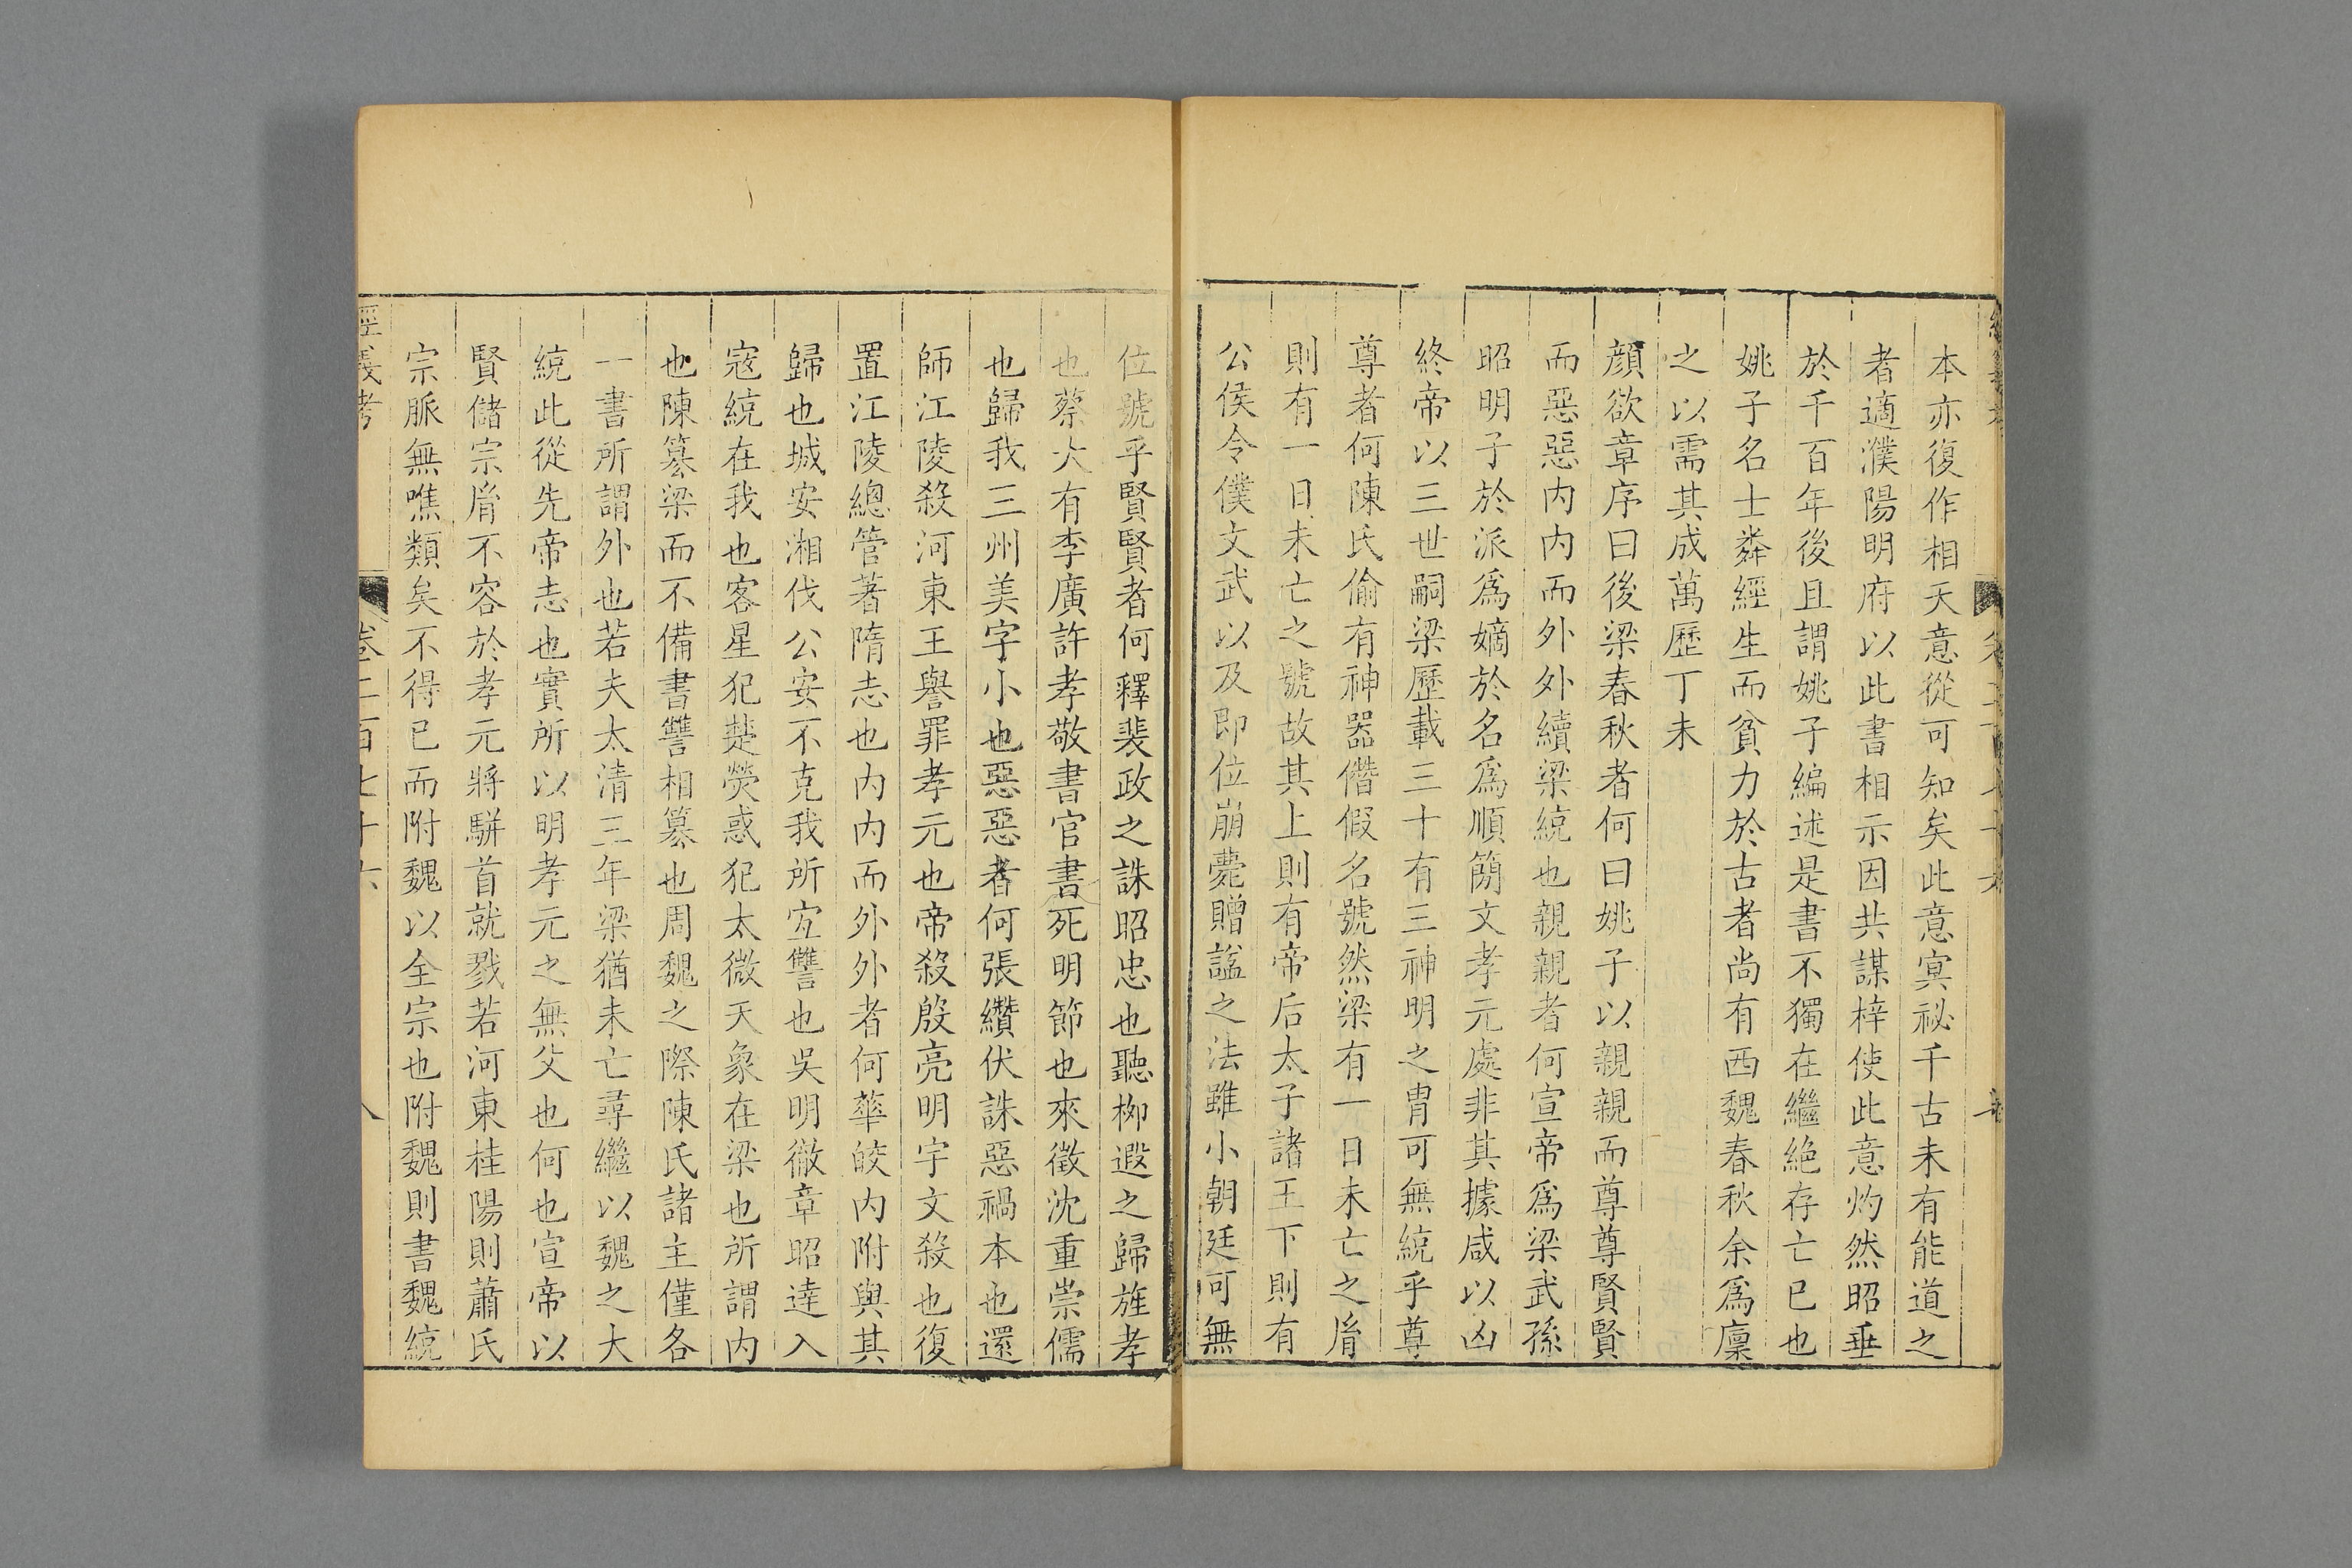 本亦復作相天意從可知矣此意寘祕千古未有能道之
者適濮陽明府以此書相示因共謀梓使此意灼然昭垂
於千百年後且謂姚子編述是書不獨在繼絶存亡已也
姚子名士粦經生而貧力於古者尚有西魏春秋余爲廩
之以需其成萬歷丁未
顔欲章序曰後梁春秋者何曰姚子以親親而尊尊賢賢
而惡惡内内而外外續梁統也親親者何宣帝爲梁武孫
昭明子於派爲嫡於名爲順簡文孝元處非其據咸以凶
終帝以三世嗣梁歷載三十有三神明之胄可無統乎尊
尊者何陳氏偷有神器僭假名號然梁有一日未亡之胤
則有一日未亡之號故其上則有帝后太子諸王下則有
公侯令僕文武以及即位崩薨贈諡之法雖小朝廷可無
位號乎賢賢者何釋裴政之誅昭忠也聽柳遐之歸旌孝
也蔡大有李廣許孝敬書官書死明節也來徵沈重崇儒
也歸我三州美字小也惡惡者何張纘伏誅惡禍本也還
師江陵殺河東王譽罪孝元也帝殺殷亮明宇文殺也復
置江陵總管著隋志也内内而外外者何華皎内附與其
歸也城安湘伐公安不克我所宐讐也吳明徹章昭達入
寇統在我也客星犯楚熒惑犯太微天象在梁也所謂内
也陳簒梁而不備書讐相簒也周魏之際陳氏諸主僅各
一書所謂外也若夫太清三年梁猶未亡尋繼以魏之大
統此從先帝志也實所以明孝元之無父也何也宣帝以
賢儲宗胤不容於孝元將駢首就戮若河東桂陽則蕭氏
宗脈無噍類矣不得已而附魏以全宗也附魏則書魏統
經義考
卷二百七十六
八